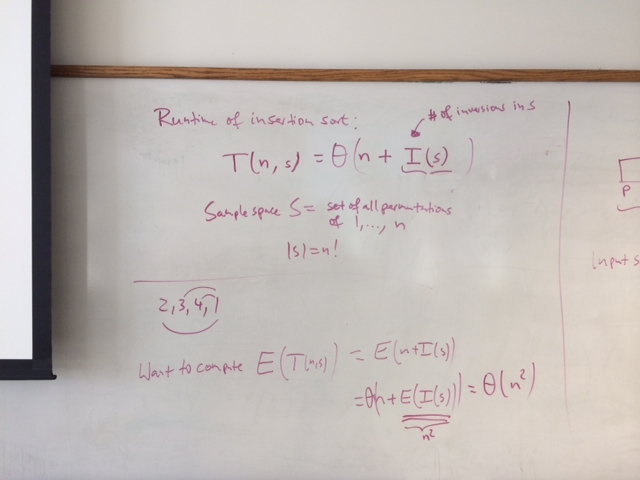 Runtime of insertion sort:
# of inversions in s
T(n, s) = Θ(n + I(s))
Sample space S = set of all permutations
of 1, ..., n
|S| = n!
2, 3, 4, 1
Want to compute E(T(n,s)) = E(n+I(s))
= Θ(n + E(I(s))) = Θ(n²)
n²
P
Input s